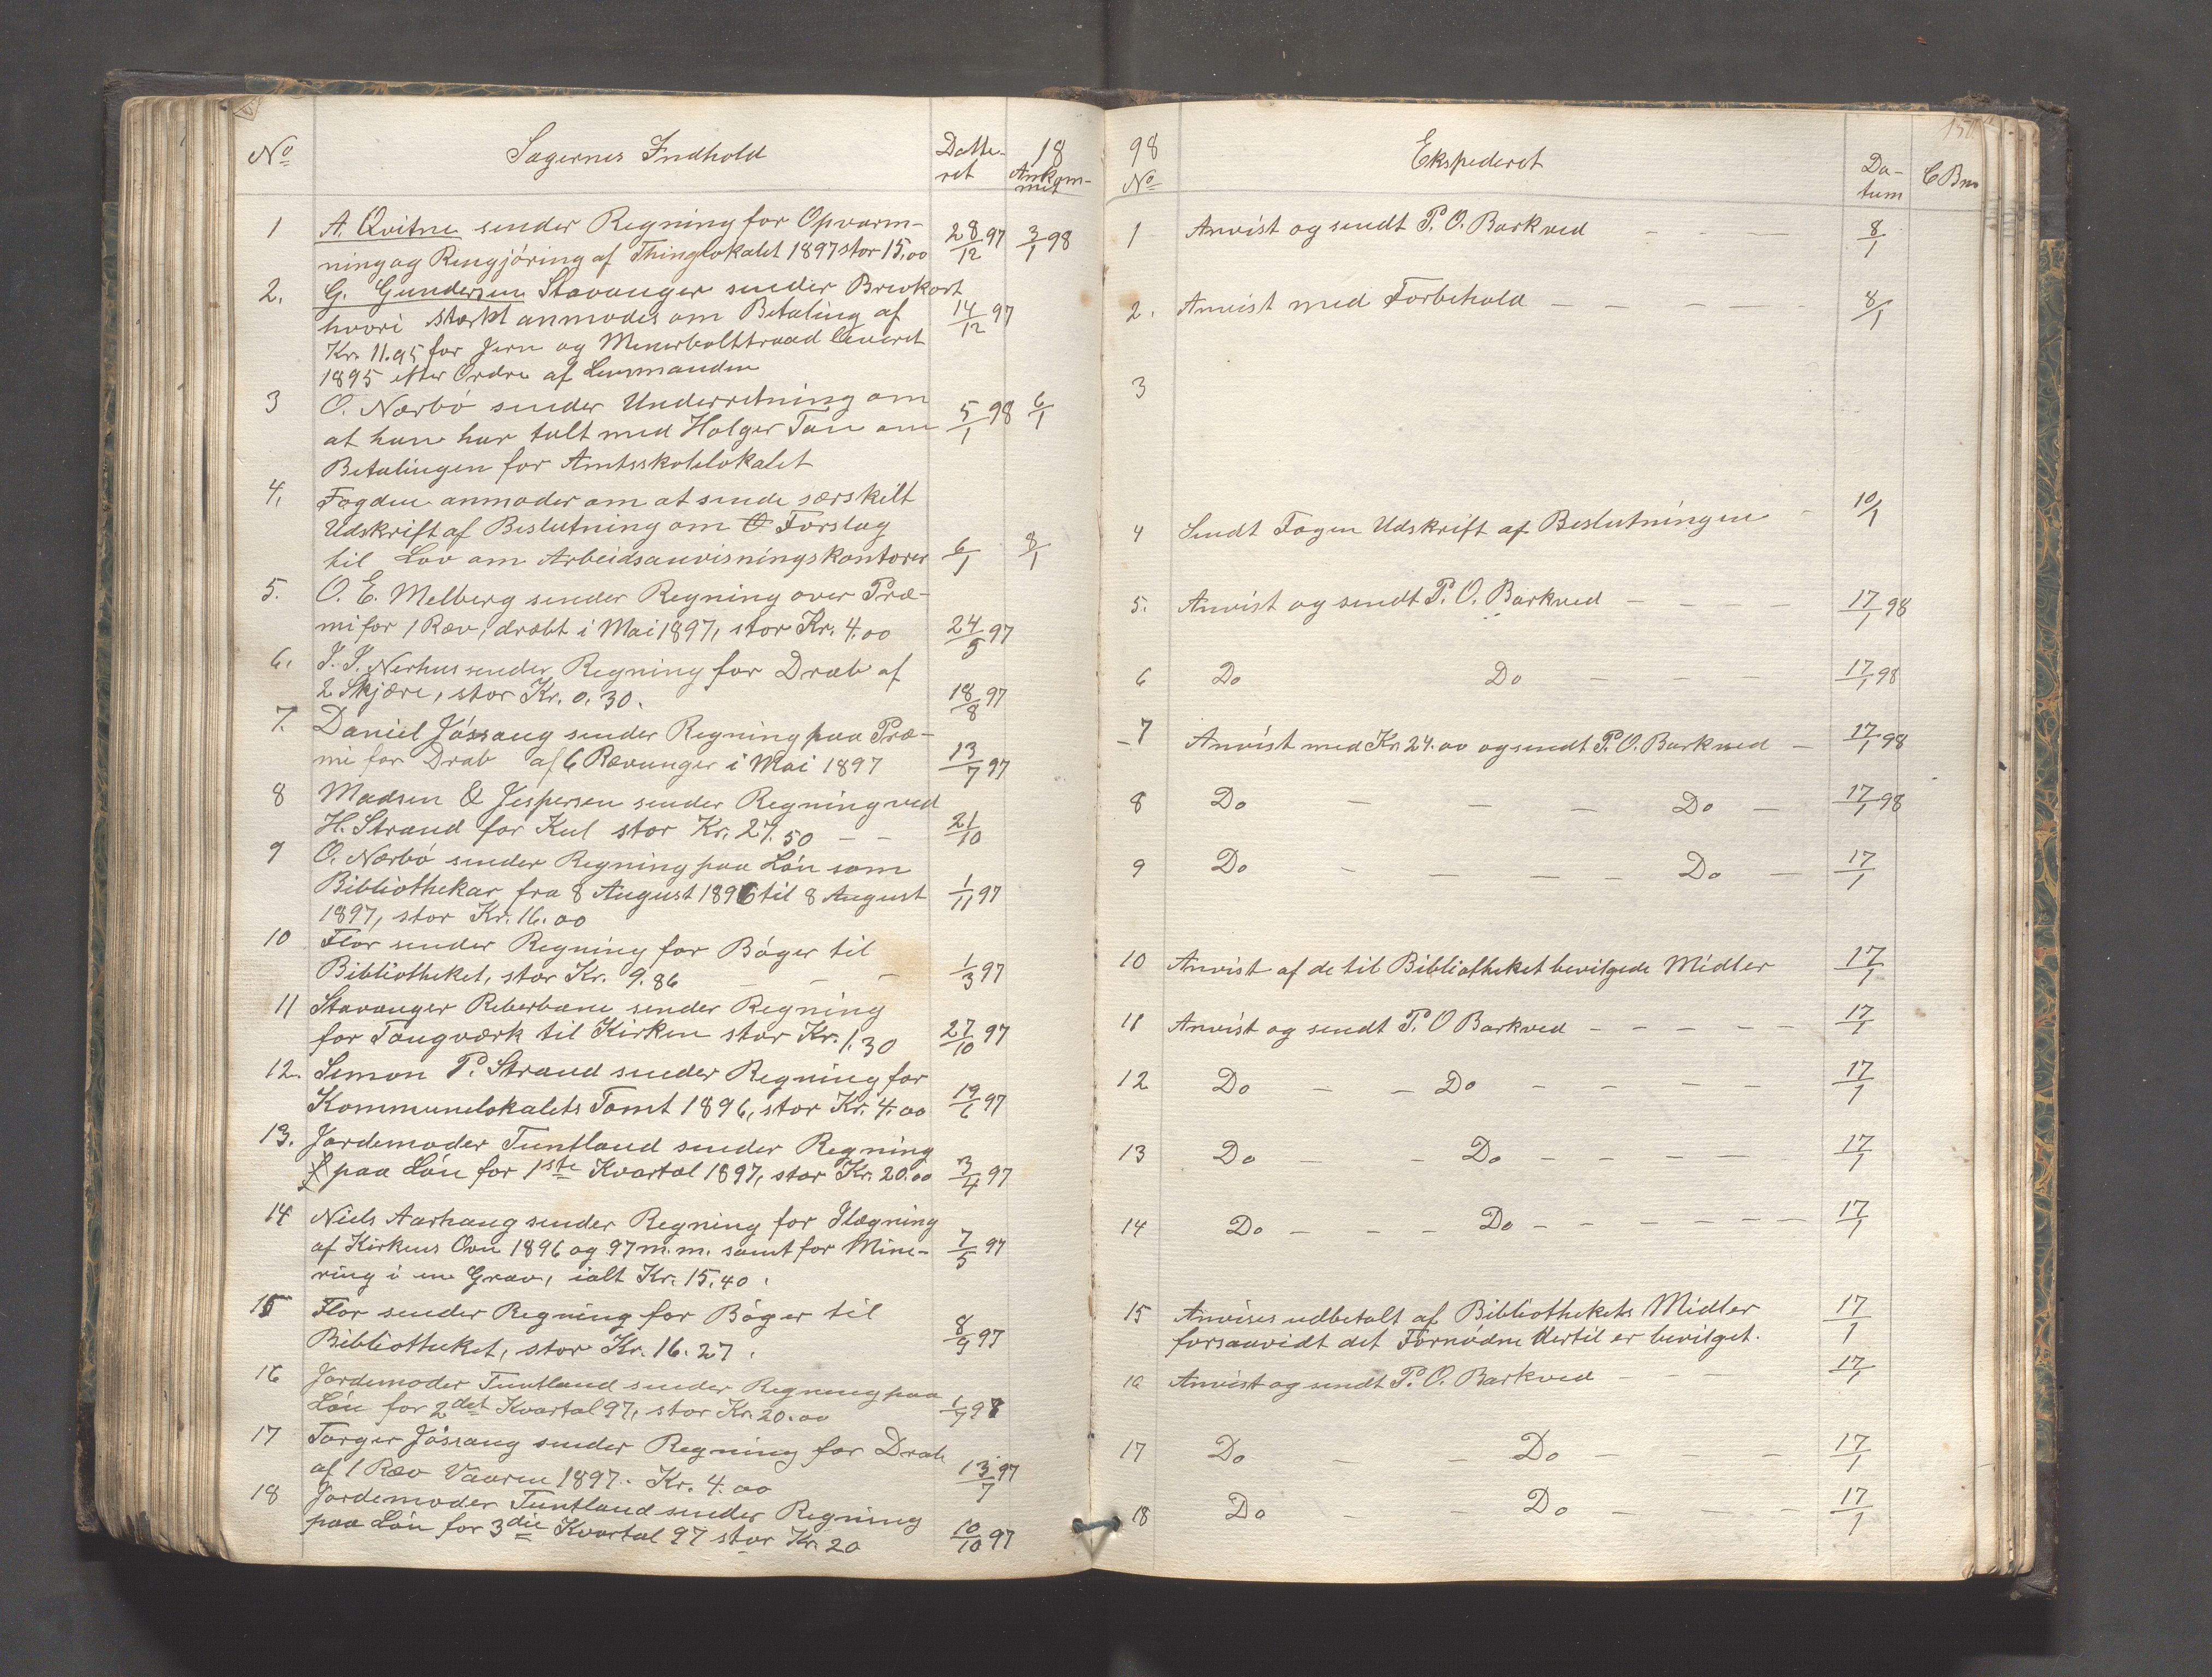 No Sagernes Indhold Datte- 18
ret Ankom-
met
1 A. Qvitne sender Regning for Opvarm-
ning og Rengjöring af Thinglokalet 1897 stor 15,00 28/12 97 3/1 98
2. G. Gundersen Stavanger sender Brevkort
hvori stærkt anmodes om Betaling af 14/12 97
Kr. 11.95 for Jern og leveret
1895 efter Ordre af Lensmanden
3 O. Nærbö sender Underretning om
at han har talt med Holger Tau om 5/1 98 6/1
Betalingen for Amtsskolelokalet
4. Fogden anmoder om at sende særskilt
Udskrift af Beslutning om Forslag
til Lov om Arbeidsanvisningskontorer 6/1 8/1
5. O. E. Melberg sender Regning over Præ-
mi for 1 Ræv, dræbt i Mai 1897, stor Kr. 4.00 24/5 97
6. I. I. Nerhus sender Regning for Drab af
2 Skjære, stor Kr. 0.30. 18/8 97
7. Daniel Jössang sender Regning paa Præ-
mi for Drab af 6 Rævunger i Mai 1897 13/7 97
8 Madsen & Jespersen sender Regning ved
H. Strand for Kul stor Kr. 27.50 — — 21/10
9 O. Nærbö sender Regning paa Lön som
Bibliothekar fra 8 August 1896 til 8 August 1/11 97
1897, stor Kr. 16.00
10 Flor sender Regning for Böger til
Bibliotheket, stor Kr. 9.86 — — — 1/3 97
11 Stavanger Reberbane sender Regning
for Taugværk til Kirken stor Kr. 1.30 27/10 97
12. Simon P. Strand sender Regning for
Kommunelokalets Tomt 1896, stor Kr. 4.00 19/6 97
13. Jordemoder Tuntland sender Regning
paa Lön for 1ste Kvartal 1897, stor Kr. 20.00 3/4 97
14 Niels Aarhaug sender Regning for Ilægning
af Kirkens Ovn 1896 og 97 m.m. samt for Mine- 7/5 97
ring i en Grav, ialt Kr. 15.40.
15 Flor sender Regning for Böger til
Bibliotheket, stor Kr. 16.27. 8/9 97
16 Jordemoder Tuntland sender Regning paa
Lön for 2det Kvartal 97, stor Kr. 20.00 1/7 97
17 Torger Jössang sender Regning for Drab
af 1 Ræv Vaaren 1897. Kr. 4.00 13/7 97
18 Jordemoder Tuntland sender Regning
paa Lön for 3die Kvartal 97 stor Kr. 20 10/10 97
98 Ekspederet Da-
No tum
1 Anvist og sendt P. O. Barkved — — — 8/1
2. Anvist med Forbehold — — — — 8/1
3
4 Sendt Fogen Udskrift af Beslutningen — 10/1
5. Anvist og sendt P. O. Barkved — — — — 17/1 98
6 Do Do — — — 17/1 98
7 Anvist med Kr. 24.00 og sendt P. O. Barkved — 17/1 98
8 Do — — — Do — 17/1 98
9 Do — — — — Do — 17/1
10 Anvist af de til Bibliotheket bevilgede Midler 17/1
11 Anvist og sendt P. O Barkved — — — — — 17/1
12 Do — — Do — — — — 17/1
13 Do — — Do — — — — 17/1
14 Do — — — Do — — — — — — 17/1
15 Anvises udbetalt af Bibliothekets Midler 17/1
forsaavidt det Fornödne dertil er bevilget.
16 Anvist og sendt P. O. Barkved — — — 17/1
17 Do — — Do — — — 17/1
18 Do — — Do — — — 17/1